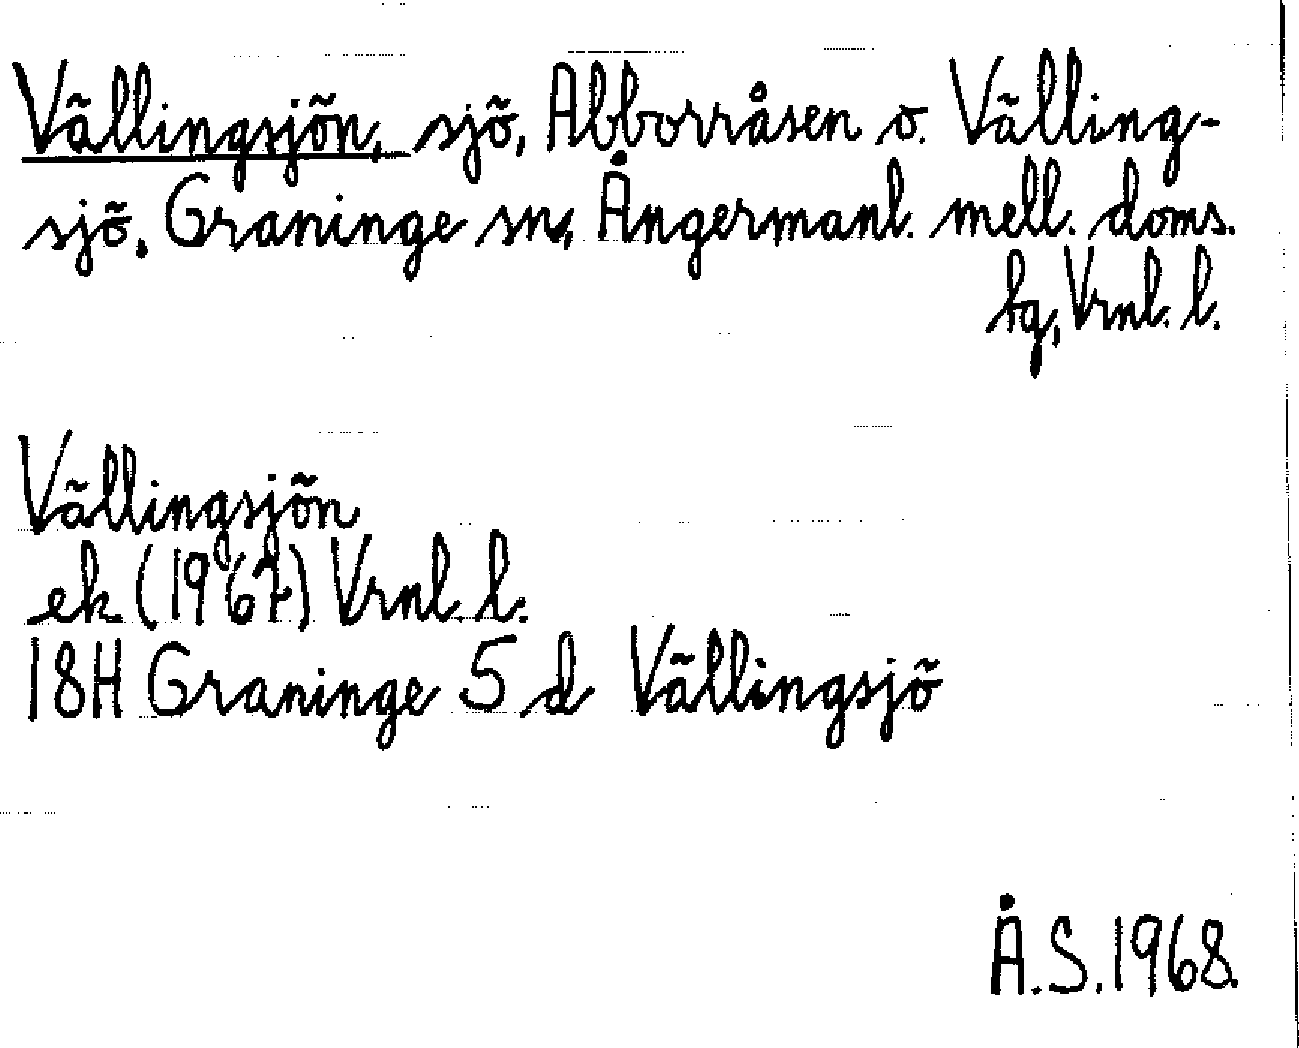 Vällingsjön, sjö, Abborråsen o. Välling-
sjö. Graninge sn, Ångermanl. mell. doms.
bg, Vrnl. l.
Vällingsjön
ek (1967) Vrnl. l.
18H Graninge 5 d Vällingsjö
Å.S. 1968.